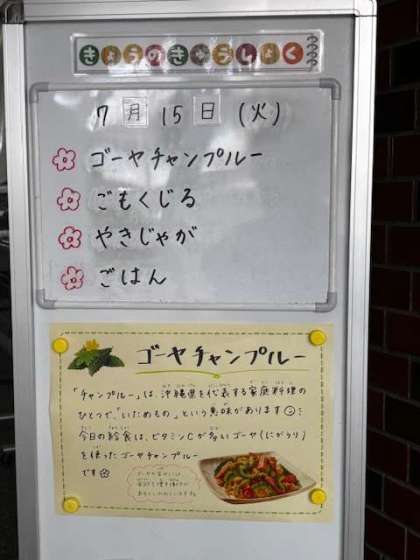 きょうのきゅうしょく
7月15日(火)
ゴーヤチャンプルー
ごもくじる
やきじゃが
ごはん
ゴーヤチャンプルー
「チャンプルー」は、沖縄県を代表する家庭料理の
ひとつで、「いためもの」という意味があります☺
今日の給食は、ビタミンCが多いゴーヤ(にがうり)
を使ったゴーヤチャンプルー
です